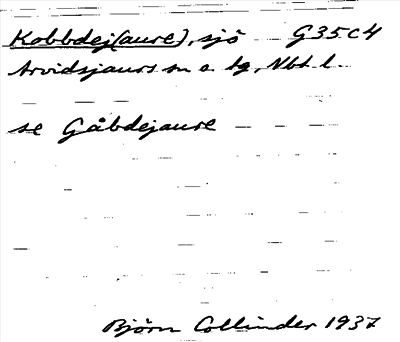 Kobbdej(aure), sjö G35c4
Arvidsjaurs sn o. tg, Nbt. l.
se Gåbdejaure
Björn Collinder 1937